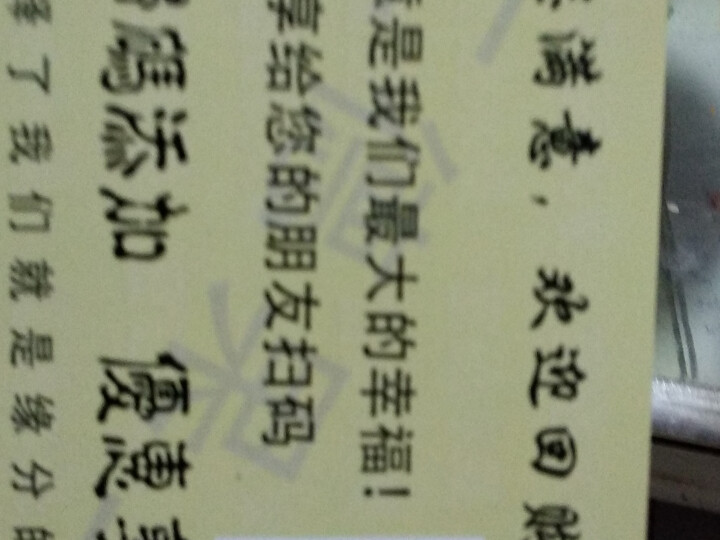 满意，欢迎回
是我们最大的幸福!
享给您的朋友扫码
鹤添加 優惠
了我们就是缘分